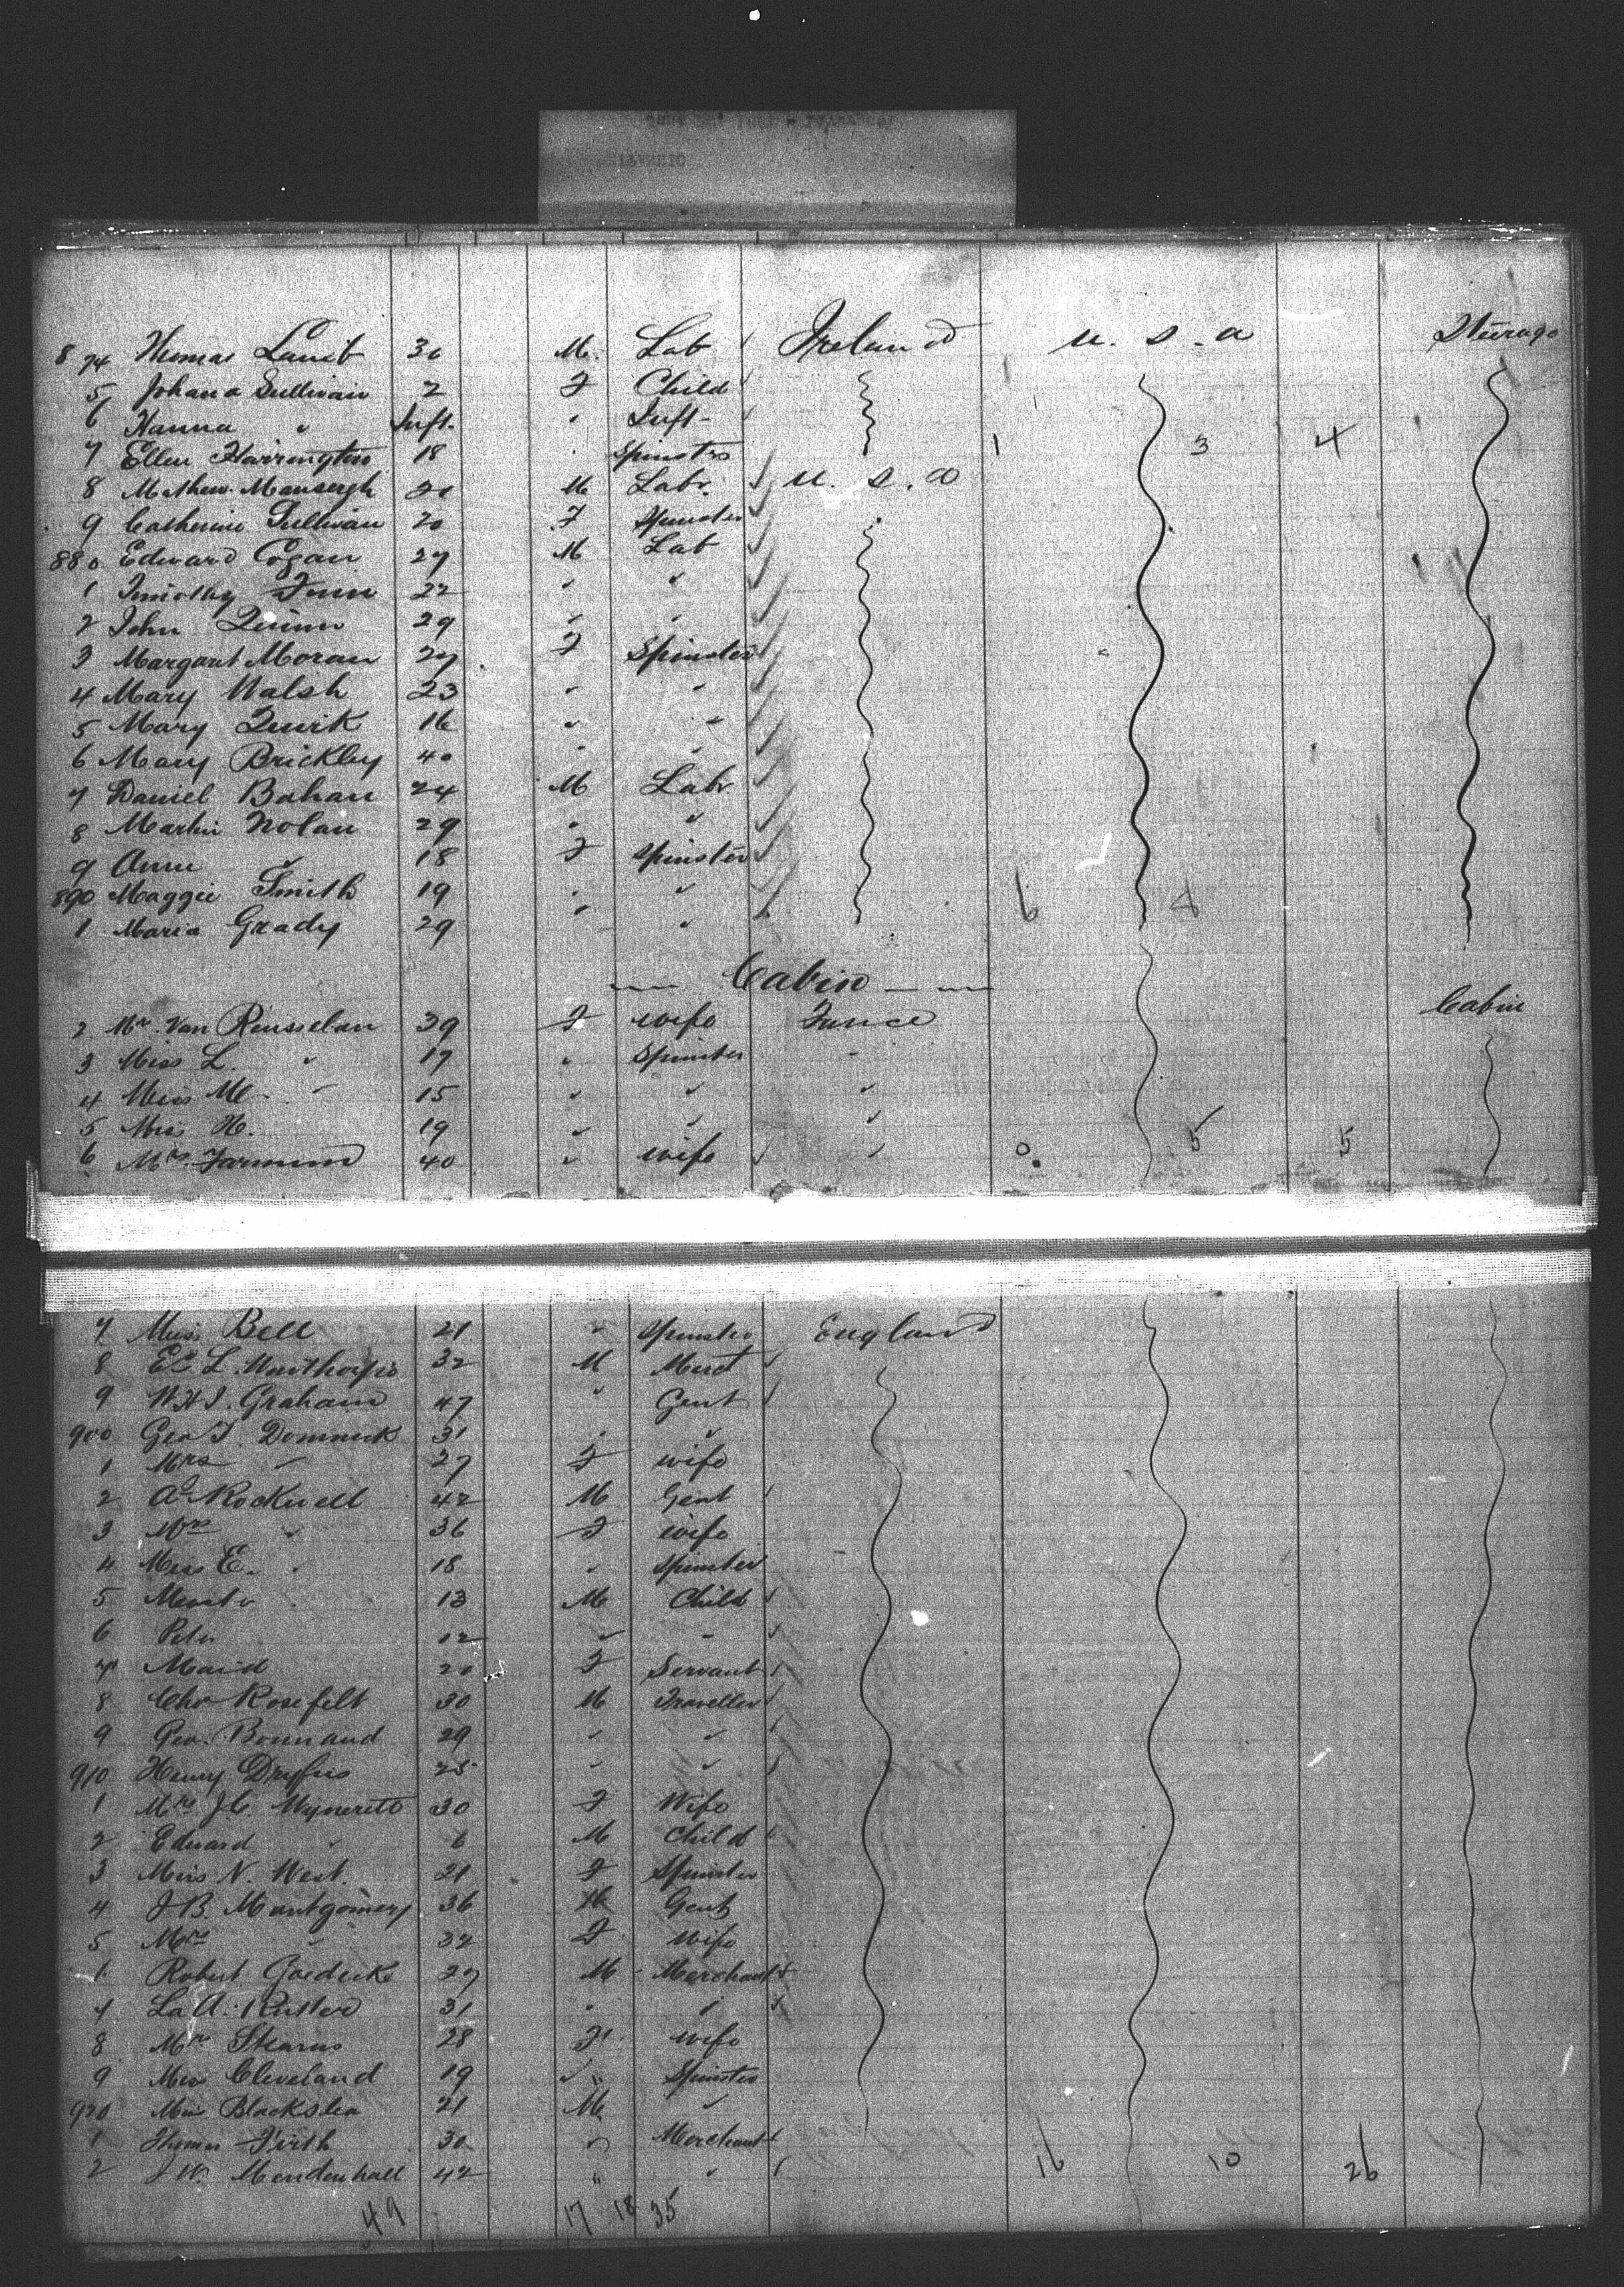 8 74 Thomas Lamb 30 M. Lab Ireland U. S. a Steerage
5 Johana Sullivan 2 F Child
6 Hanna " Inft. " Inft-
7 Ellen Harrington 18 Spinster 1 3 4
8 Mathew Mansergh 20 M Labr. U. S. a
9 Catherine Sullivan 20 F Spinster
880 Edward Cogan 27 M Lab
1 Timothy Finn 22 " "
2 John Quinn 29 " "
3 Margaret Moran 27 F Spinster
4 Mary Walsh 23 " "
5 Mary Quirk 16 " "
6 Mary Brickley 40 " "
7 Daniel Bohan 24 M Labr
8 Martin Nolan 29 " "
9 Annie " 18 F Spinster
890 Maggie Smith 19 " " 6
1 Maria Grady 29 " "
Cabin
2 Mrs. Van Rensselan 39 F wife France Cabin
3 Miss L. " 17 " Spinster "
4 Miss M " 15 " " "
5 Miss H. 19 " " "
6 Mrs 40 " wife " 0 5 5
7 Miss Bell 21 " Spinster England
8 L. 32 M Mercht
9 W.H.J. Graham 47 " Gent
900 Geo J. Dominick 31 " "
1 Mrs " 27 F wife
2 A Rockwell 42 M Gent
3 Mrs " 36 F wife
4 Miss E. " 18 " Spinster
5 Mast 13 M Child
6 Peter 12 " "
7 Maid 20 F Servant
8 Chs Rosefelt 30 M Traveller
9 Geo. Bonnaud 29 " "
910 Henry Dryfus 25 " "
1 Mrs J.C. 30 F Wife
2 Edward " 6 M Child
3 Miss N. West. 21 F Spinster
4 J B. Montgomery 36 M Gent
5 Mrs " 32 F Wife
6 Robert Goedecke 27 M Merchant
7 La A. Rutter 31 " "
8 Mrs Stearns 28 F wife
9 Miss Cleveland 19 " " Spinster
920 Miss 21 M "
1 Thomas Firth 30 " Merchant
2 J W. Mendenhall 42 " " 16 10 26
49 17 18 35